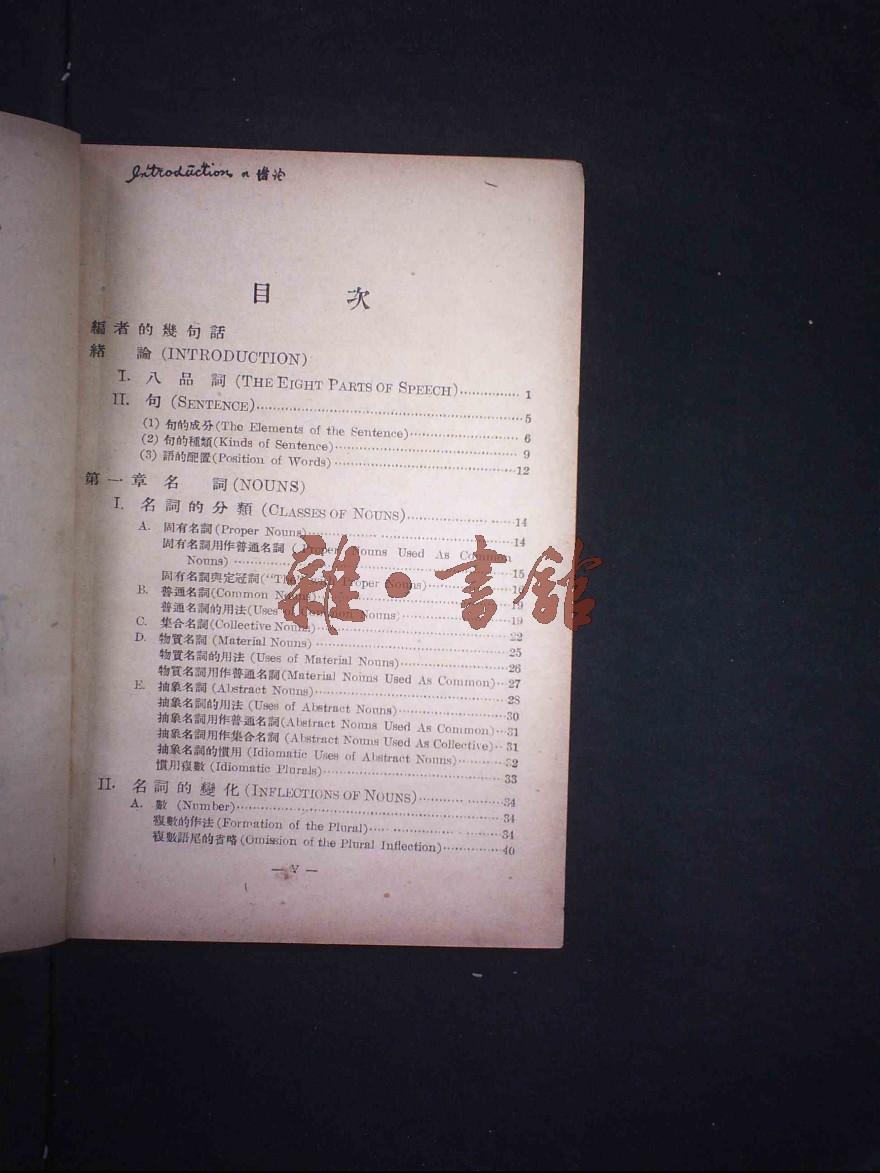 Introduction n 绪论
目 次
編者的幾句話
緒 論 (INTRODUCTION)
I. 八 品 詞 (THE EIGHT PARTS OF SPEECH)............... 1
II. 句 (SENTENCE)............... 5
(1) 句的成分(The Elements of the Sentence)............... 6
(2) 句的種類(Kinds of Sentence)............... 9
(3) 語的配置(Position of Words)...............12
第一章 名 詞 (NOUNS)
I. 名詞的分類 (CLASSES OF NOUNS)...............14
A. 固有名詞(Proper Nouns)...............14
固有名詞用作普通名詞 (Proper Nouns Used As Common
Nouns)...............15
固有名詞與定冠詞("The" with Proper Nouns)...............16
B. 普通名詞(Common Nouns)...............19
普通名詞的用法(Uses of Common Nouns)...............19
C. 集合名詞(Collective Nouns)...............22
D. 物質名詞 (Material Nouns)...............25
物質名詞的用法 (Uses of Material Nouns)...............26
物質名詞用作普通名詞(Material Nouns Used As Common)...27
E. 抽象名詞 (Abstract Nouns)...............28
抽象名詞的用法 (Uses of Abstract Nouns)...............30
抽象名詞用作普通名詞(Abstract Nouns Used As Common)...31
抽象名詞用作集合名詞 (Abstract Nouns Used As Collective)...31
抽象名詞的慣用 (Idiomatic Uses of Abstract Nouns)...............32
慣用複數 (Idiomatic Plurals)...............33
II. 名詞的變化 (INFLECTIONS OF NOUNS)...............34
A. 數 (Number)...............34
複數的作法(Formation of the Plural)...............34
複數語尾的省略(Omission of the Plural Inflection)...............40
— V —
雜·書館